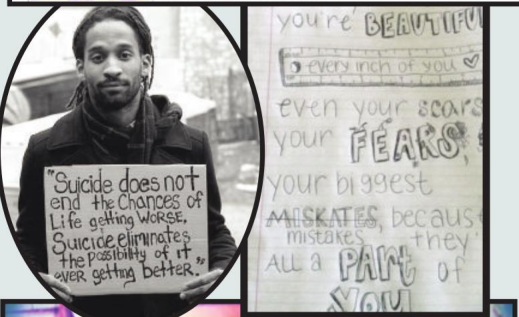 "Suicide does not
end the Chances of
Life getting WORSE,
Suicide eliminates
the possibility of it
ever getting better."
you're BEAUTIFU
every inch of you ♡
even your scars
your FEARS,
your biggest
MISKATES, becaus
mistakes they'
ALL a PART of
YOU